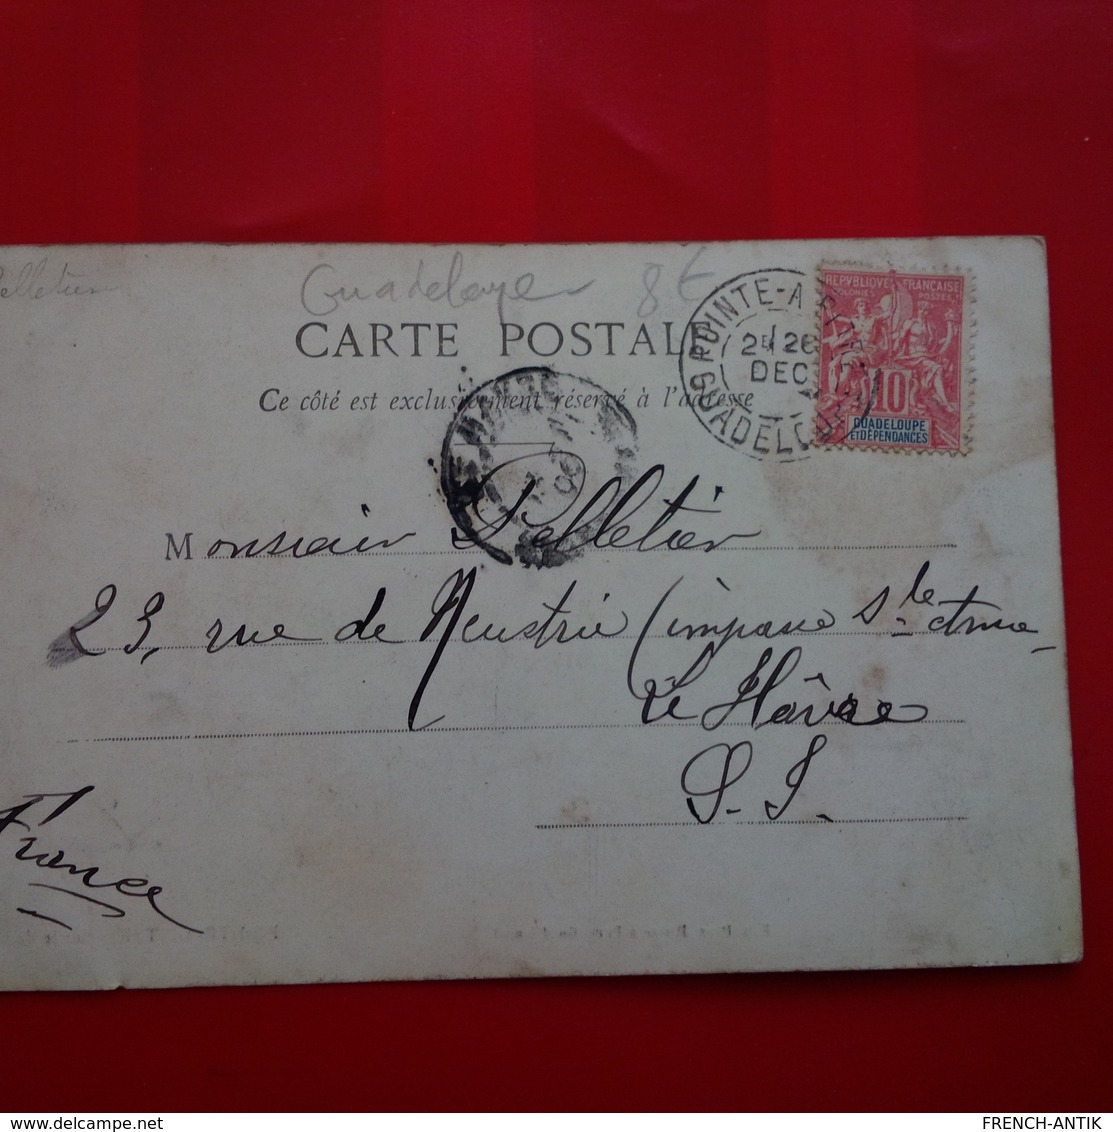 Pelletier
Guadeloupe 8€
CARTE POSTALE
Ce côté est exclusivement réservé à l'adresse
POINTE-A-PITRE
2E / 26
DEC
GUADELOUPE
REPVBLIQVE FRANÇAISE
COLONIES POSTES
10
GUADELOUPE
ET DÉPENDANCES
LE HAVRE
Monsieur Pelletier
23, rue de Neustrie (impasse Ste Anne
Le Hâvre
S. I.
France
FRENCH-ANTIK